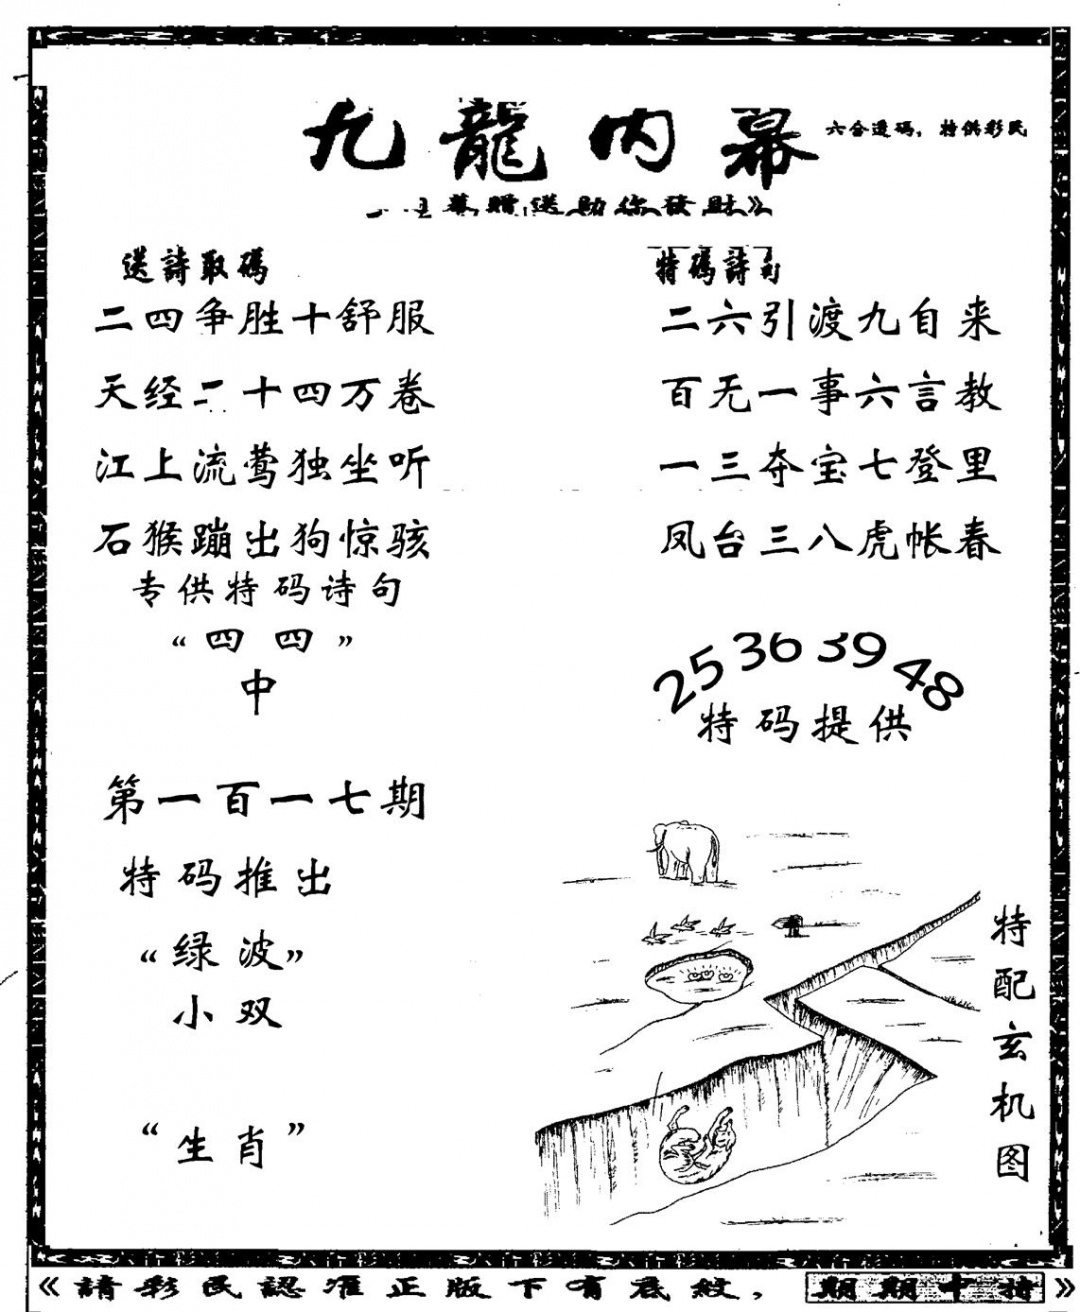 九龍内幕
六合透码，特供彩民
赠送助你發财》
送詩取碼
二四争胜十舒服
天经二十四万卷
江上流莺独坐听
石猴蹦出狗惊骇
专供特码诗句
“四四”
中
特碼詩句
二六引渡九自来
百无一事六言教
一三夺宝七登里
凤台三八虎帐春
25 36 39 48
特码提供
第一百一七期
特码推出
“绿波”
小双
“生肖”
特配玄机图
《請彩民認准正版下有底紋，期期中特》